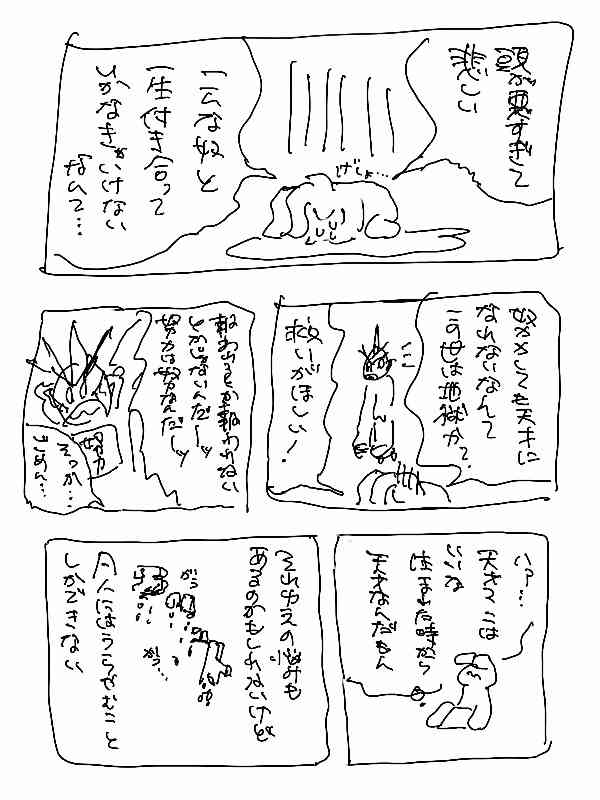 頭が悪すぎて
悲しい
げしょ…
こんな奴と
一生付き合って
いかなきゃいけない
なんて…
努力しても天才に
なれないなんて
この世は地獄か？
救いがほしい！
報われるとか報われない
とかじゃないんだーッ
努力は努なんだーッ
努力
そっか…
ごめん…
ハァ…
天才は
いいな
生まれた時から
天才なんだもん
それゆえの悩みも
あるのかもしれないけど
がっ
がっ…
凡人にはうらやむこと
しかできない